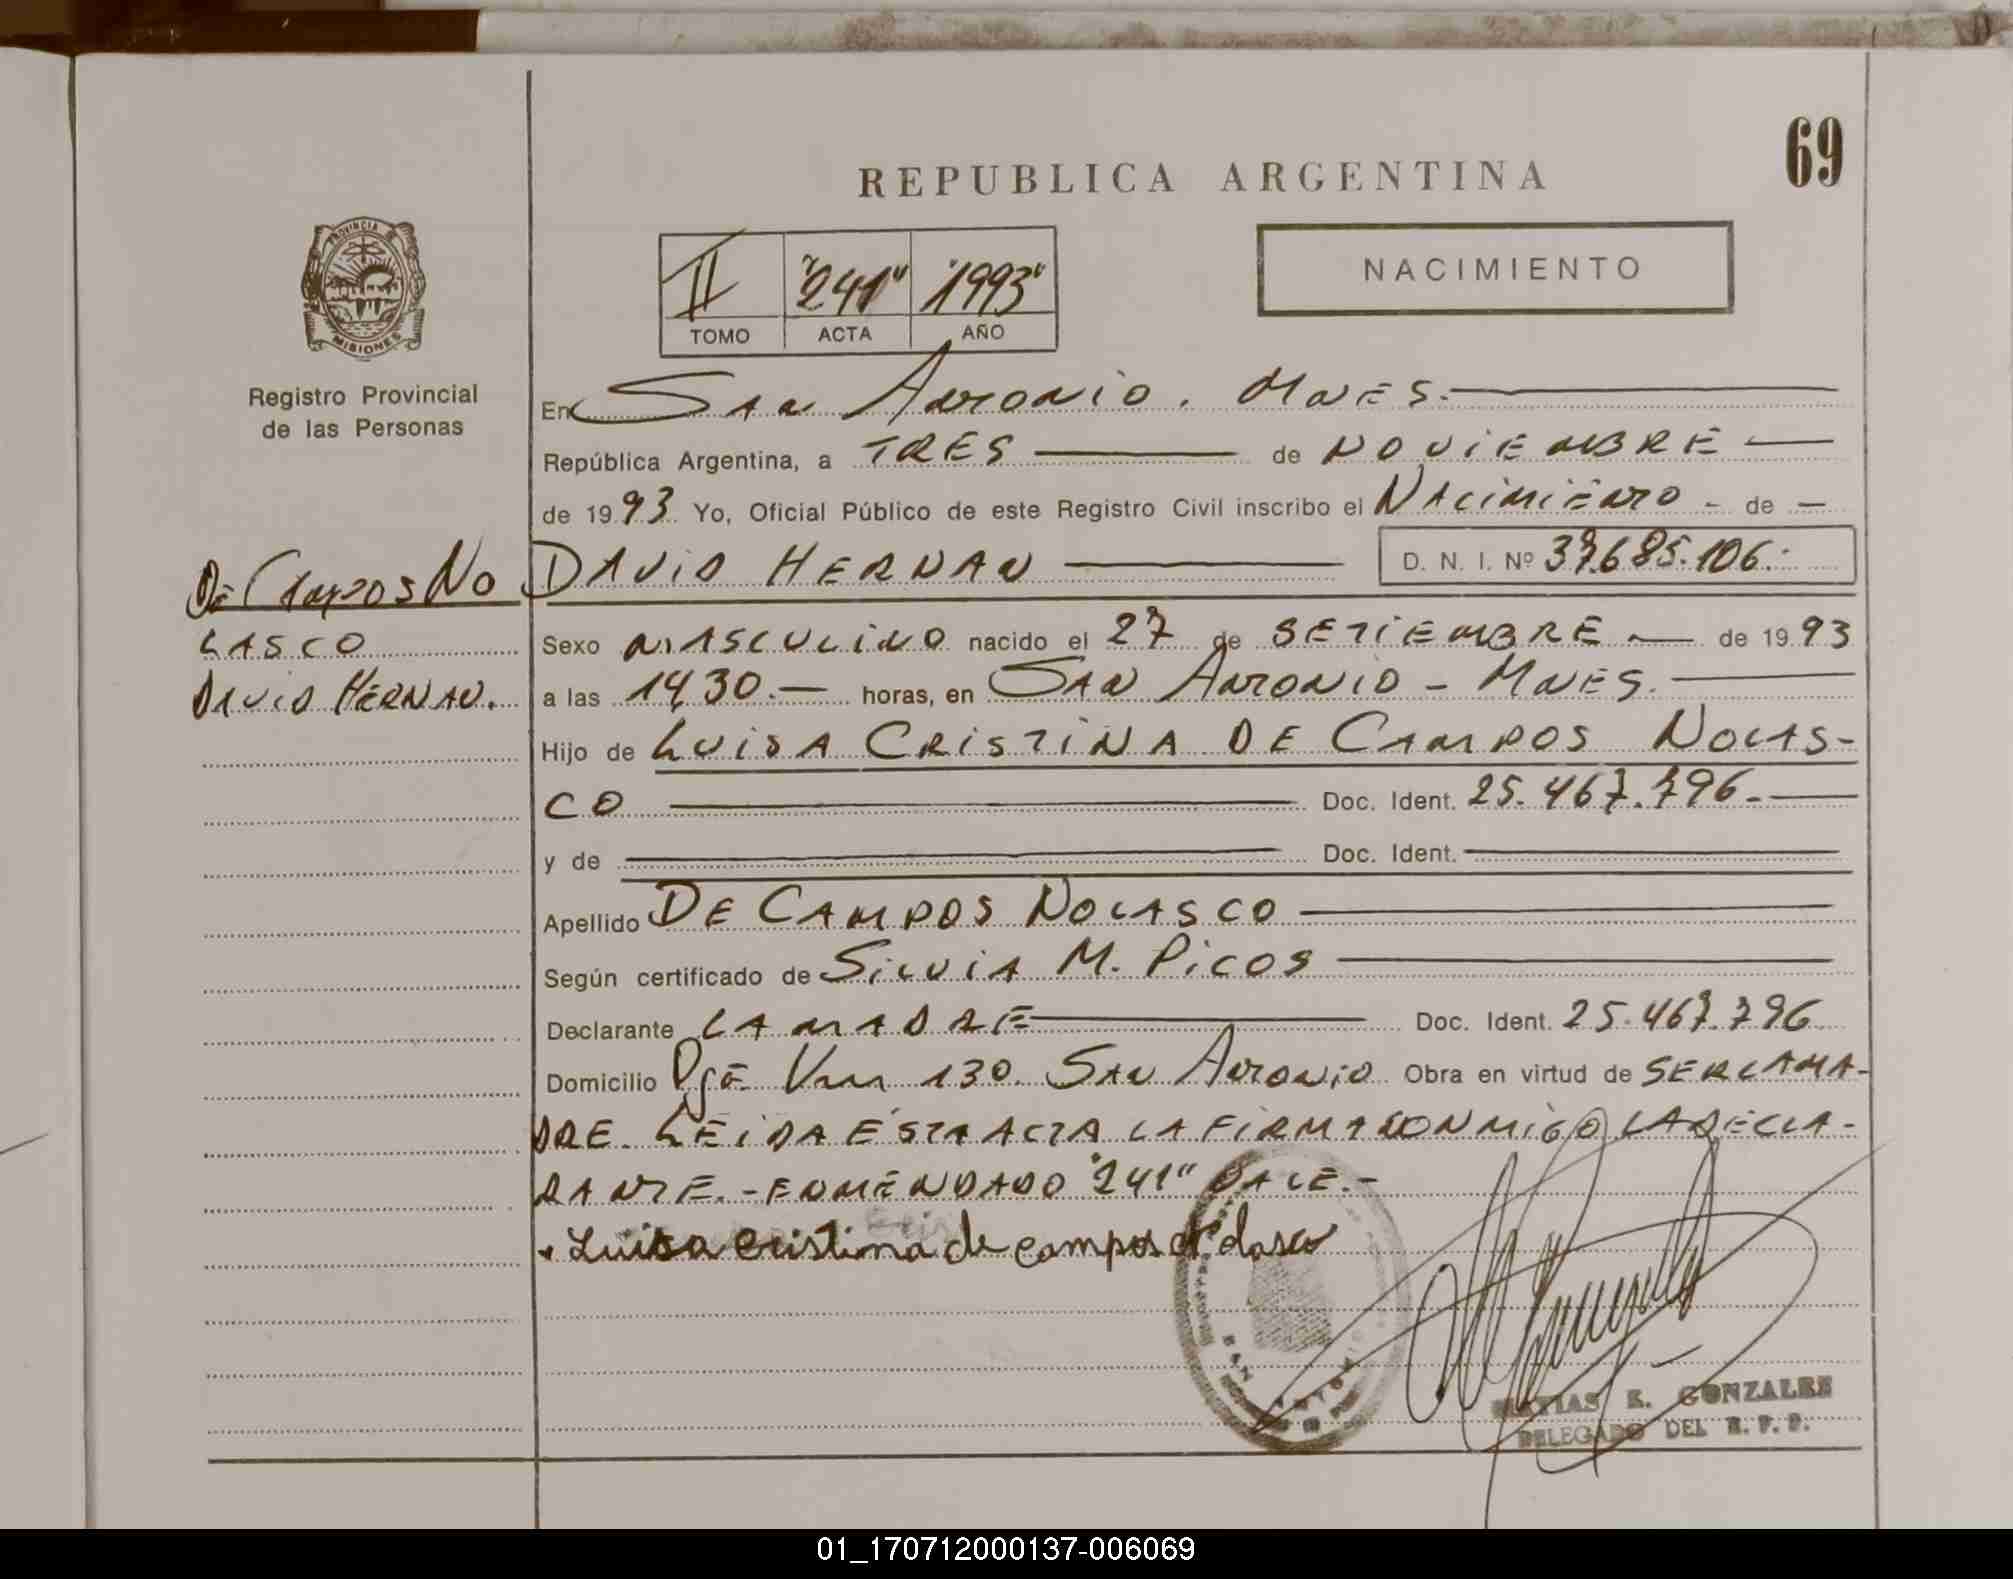 69
REPUBLICA ARGENTINA
PROVINCIA DE
MISIONES
Registro Provincial
de las Personas
II "241" "1993"
TOMO ACTA AÑO
NACIMIENTO
En San Antonio. Mnes.
República Argentina, a TRES de NOVIEMBRE
de 1993 Yo, Oficial Público de este Registro Civil inscribo el Nacimiento - de -
De Campos No
LASCO
David Hernan.
DAVID HERNAN D. N. I. Nº 37.685.106.
Sexo MASCULINO nacido el 27 de SETIEMBRE de 1993
a las 14,30.- horas, en San Antonio - Mnes.
Hijo de Luisa Cristina DE Campos Nolas-
CO Doc. Ident. 25.467.796.-
y de Doc. Ident.
Apellido DE CAMPOS NOLASCO
Según certificado de Silvia M. Picos
Declarante LA MADRE Doc. Ident. 25.467.796
Domicilio Pje 130. San Antonio Obra en virtud de SER LA MA-
DRE. LEIDA ESTA ACTA LA FIRMA CONMIGO LA DECLA-
RANTE.- ENMENDADO "241" VALE.-
Luisa cristina de campos Nolasco
SAN ANTONIO
MATIAS E. GONZALES
DELEGADO DEL R. P. P.
01_170712000137-006069